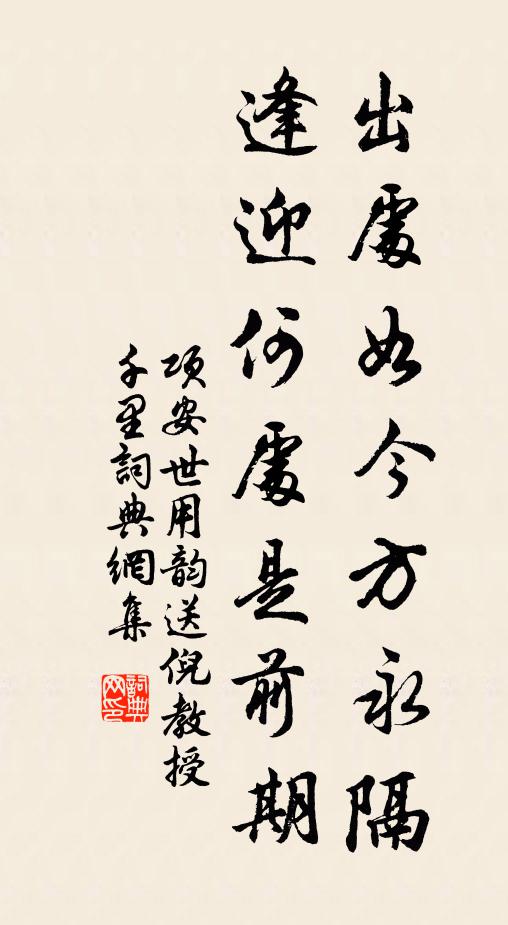 出處如今方永隔
逢迎何處是前期
項安世用韵送倪教授
千里詞典網集
詞典
网印